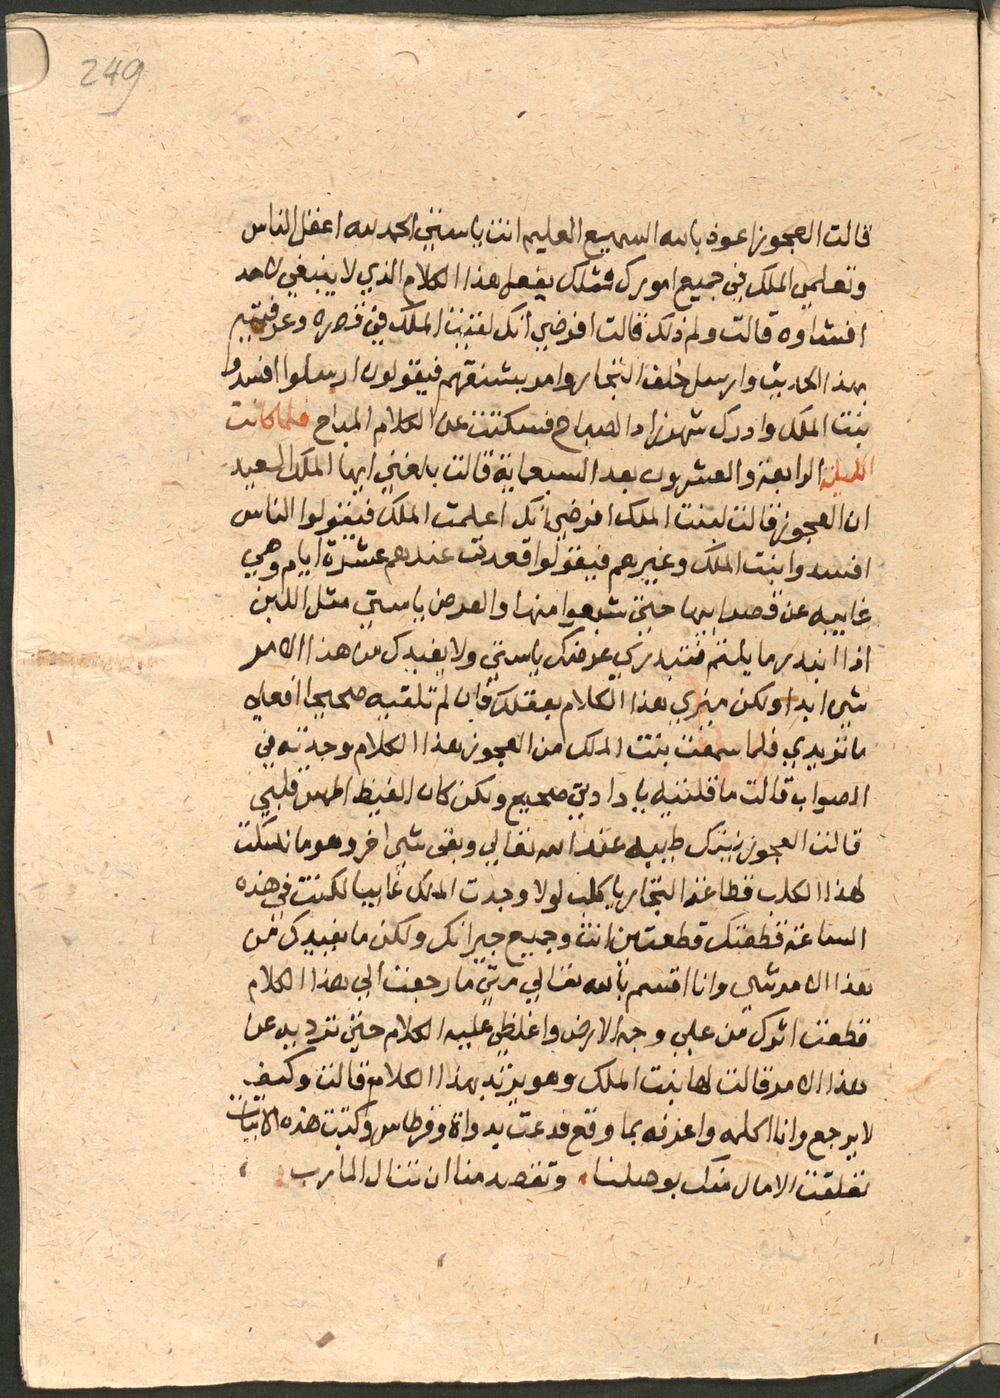 249
قالت العجوز اعوذ بالله السميع العليم انت يا ستي الحمد لله اعقل الناس
وتعلمي الملك في جميع امورك فمثلك يفعل هذا الكلام الذي لا ينبغي لاحد
افشاوه قالت ولم ذلك قالت افرضي انك لقيت الملك في قصره وعرفتيه
بهذا الحديث وارسل خلف التجار وامر بشنقهم فيقولون ارسلوا افسدوا
بنت الملك وادرك شهرزاد الصباح فسكتت عن الكلام المباح فلما كانت
الليلة الرابعة والعشرون بعد السبعماية قالت بلغني ايها الملك السعيد
ان العجوز قالت لبنت الملك افرضي انك اعلمت الملك فيقولوا الناس
افسدوا بنت الملك وغيرهم فيقولوا قعدت عندهم عشرة ايام وهي
غايبه عن قصر ابيها حتى شبعوا منها والعرض يا ستي مثل اللبن
اذا انبدر ما يلتم فتبدري عرضك يا ستي ولا يفيدك من هذا الامر
شي ابدا ولكن ميزي هذا الكلام بعقلك فان لم تلقيه صحيحا افعلي
ما تريدي فلما سمعت بنت الملك من العجوز هذا الكلام وجدته في
الصواب قالت ما قلتيه يا دادتي صحيح ولكن كان الغيظ اطمس قلبي
قالت العجوز نيتك طيبه عند الله تعالي وبقى شي اخر وهو ما نسكت
لهذا الكلب قطاعة التجار يا كلب لولا وجدت الملك غايبا لكنت في هذه
الساعة قطعتك قطعتين انت وجميع جيرانك ولكن ما يفيدك من
هذا الامر شي وانا اقسم بالله تعالي متي ما رجعت الي هذا الكلام
قطعت اثرك من علي وجه الارض واغلظي عليه الكلام حتي ترديه عن
هذا الامر قالت لها بنت الملك وهو يرتد بهذا الكلام قالت وكيف
لا يرجع وانا اكلمه واعرفه بما وقع فدعت بدواة وقرطاس وكتبت هذه الابيات
تعلقت الامال منك بوصلنا وتقصد منا ان تنال المارب